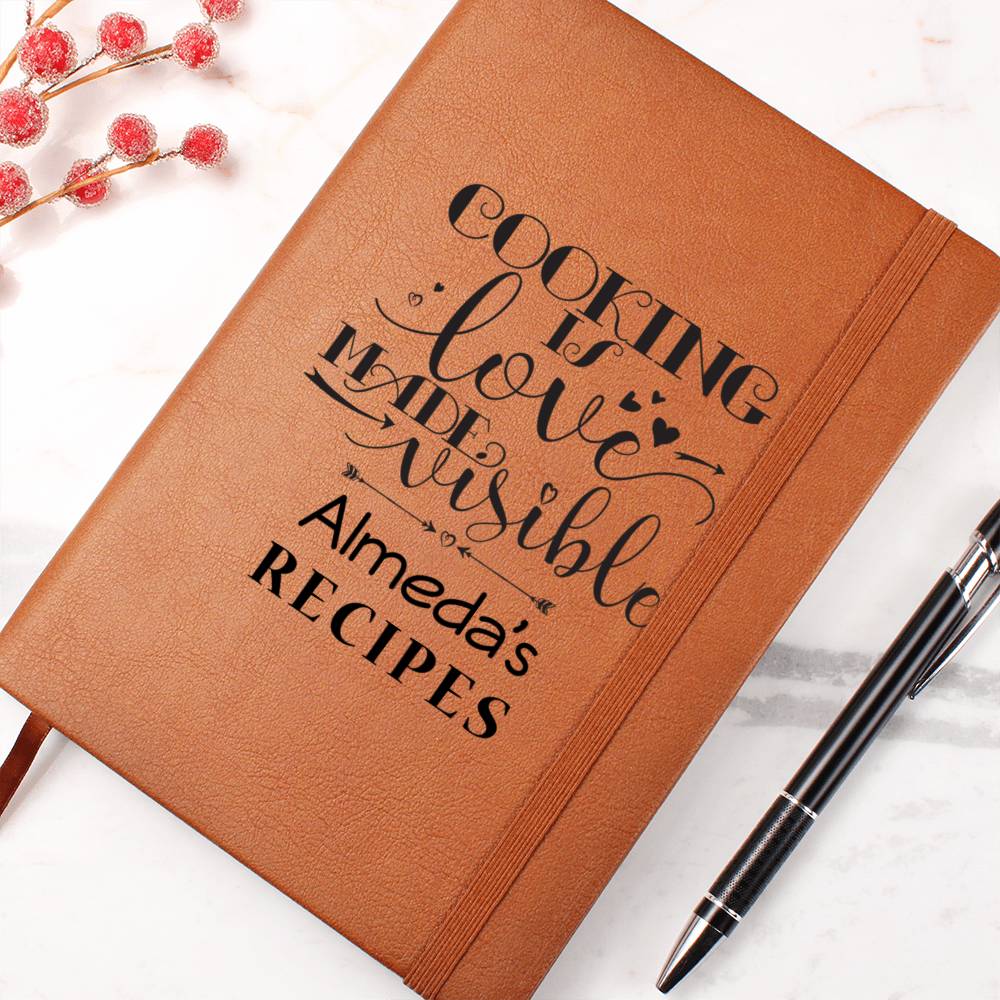 COOKING
IS
love
MADE
visible
Almeda's
RECIPES